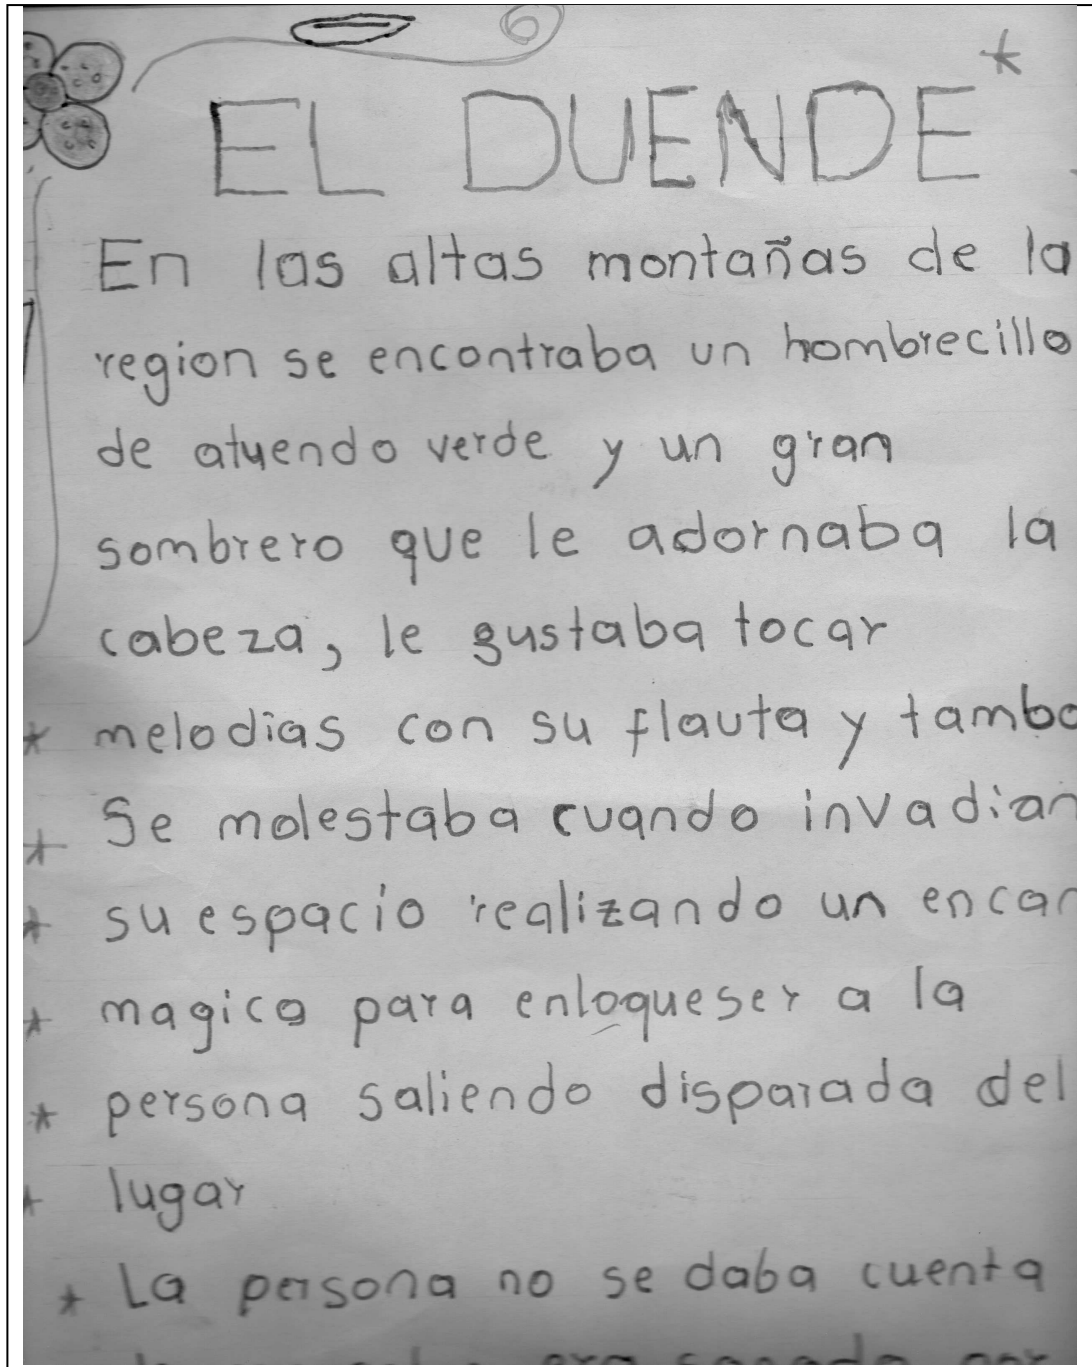 EL DUENDE
En las altas montañas de la
region se encontraba un hombrecillo
de atuendo verde y un gran
sombrero que le adornaba la
cabeza, le gustaba tocar
melodias con su flauta y tambo
Se molestaba cuando invadian
su espacio realizando un encan
magico para enloqueser a la
persona saliendo disparada del
lugar
La persona no se daba cuenta